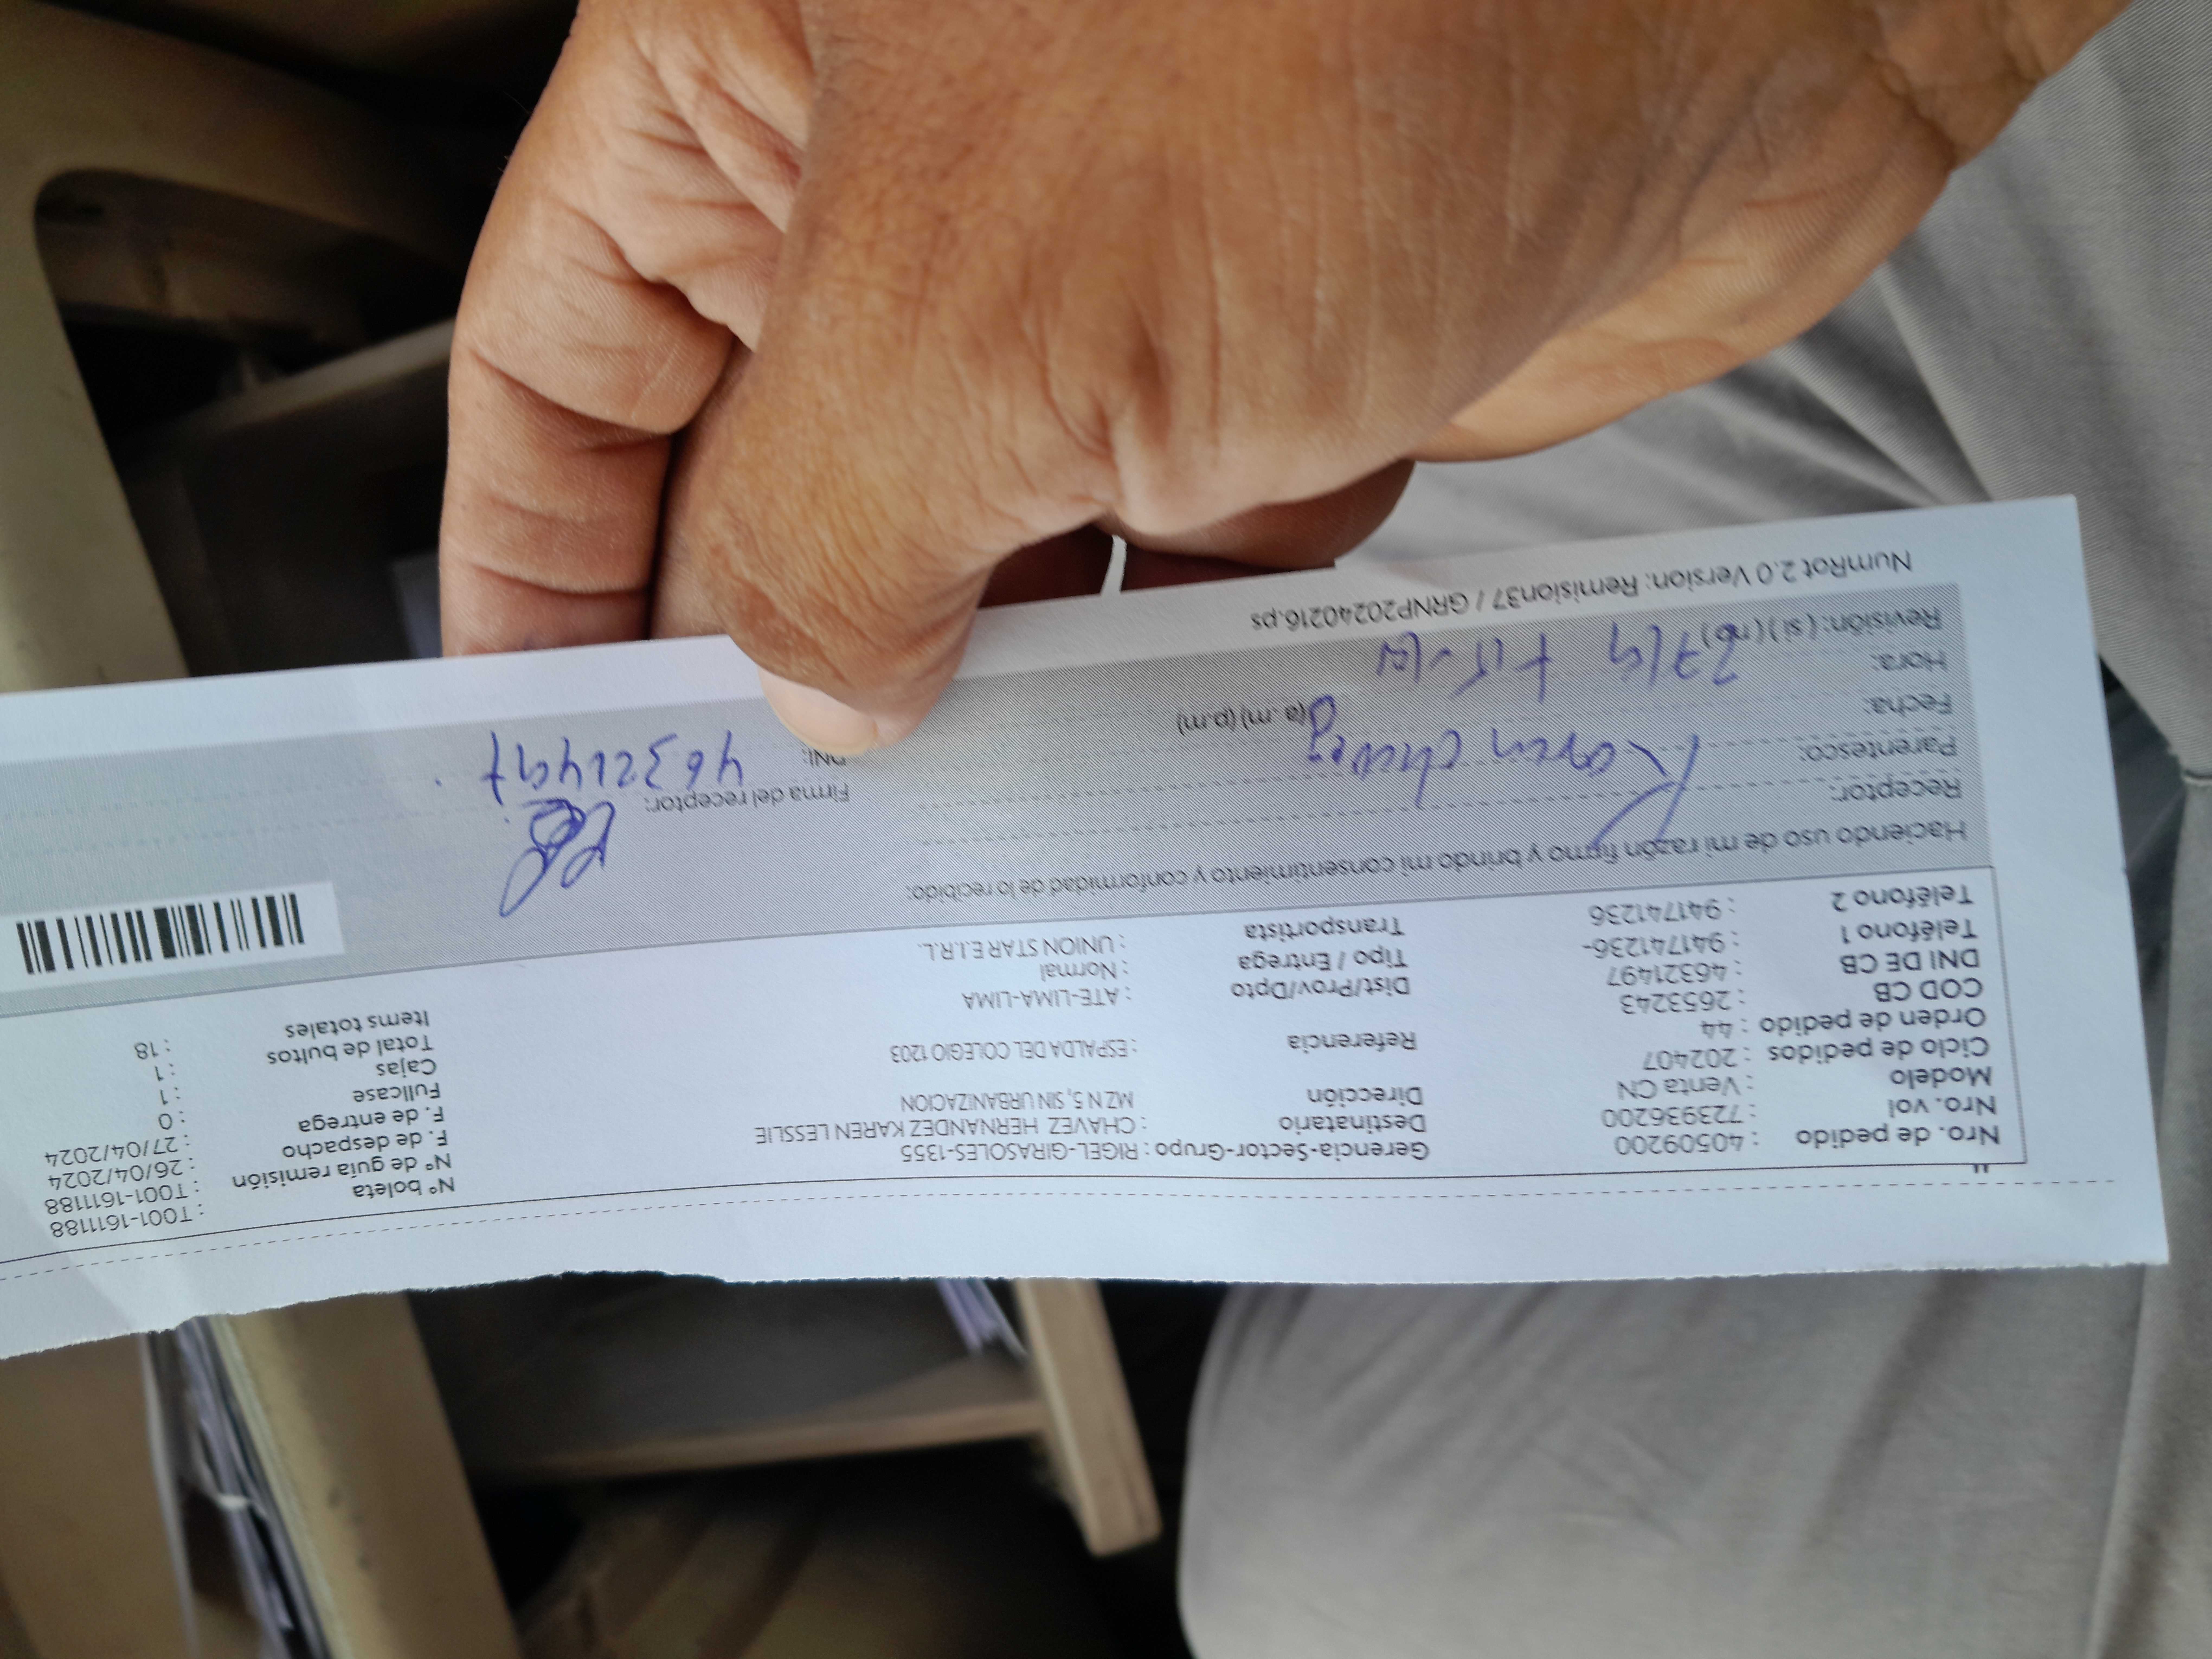 Nro. de pedido : 40509200 Gerencia-Sector-Grupo : RIGEL-GIRASOLES-1355 N° boleta : T001-1611188
Nro. vol : 723936200 Destinatario : CHAVEZ HERNANDEZ KAREN LESSLIE N° de guía remisión : T001-1611188
Modelo : Venta CN Dirección MZ N 5, SIN URBANIZACION F. de despacho : 26/04/2024
Ciclo de pedidos : 202407 F. de entrega : 27/04/2024
Orden de pedido : 44 Referencia : ESPALDA DEL COLEGIO 1203 Fullcase : 0
COD CB : 2653243 Cajas : 1
DNI DE CB : 46321497 Dist/Prov/Dpto : ATE-LIMA-LIMA Total de bultos : 1
Teléfono 1 : 941741236- Tipo / Entrega : Normal Items totales : 18
Teléfono 2 : 941741236 Transportista : UNION STAR E.I.R.L.
Haciendo uso de mi razón firmo y brindo mi consentimiento y conformidad de lo recibido:
Receptor:
Parentesco: Karen Chavez Firma del receptor:
Fecha: DNI: 46321497
Hora: 27/4 (a .m) (p.m)
Revisión: (si) (no)
NumRot 2.0 Version: Remision37 / GRNP20240216.ps